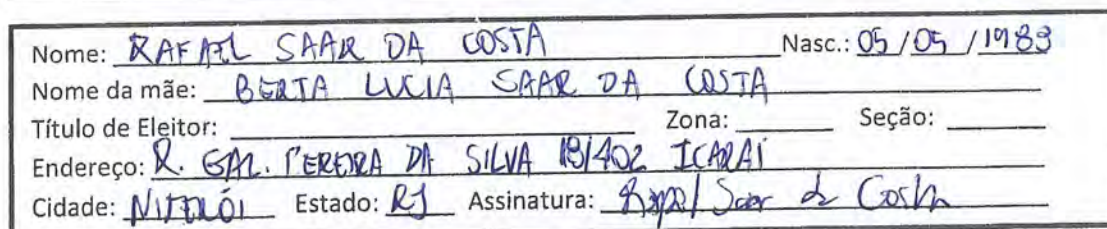 Nome: RAFAEL SAAR DA COSTA Nasc.: 05/05/1983
Nome da mãe: BERTA LUCIA SAAR DA COSTA
Título de Eleitor: Zona: Seção:
Endereço: R. GAL. PEREIRA DA SILVA 19/402 ICARAÍ
Cidade: NITERÓI Estado: RJ Assinatura: Rafael Saar da Costa